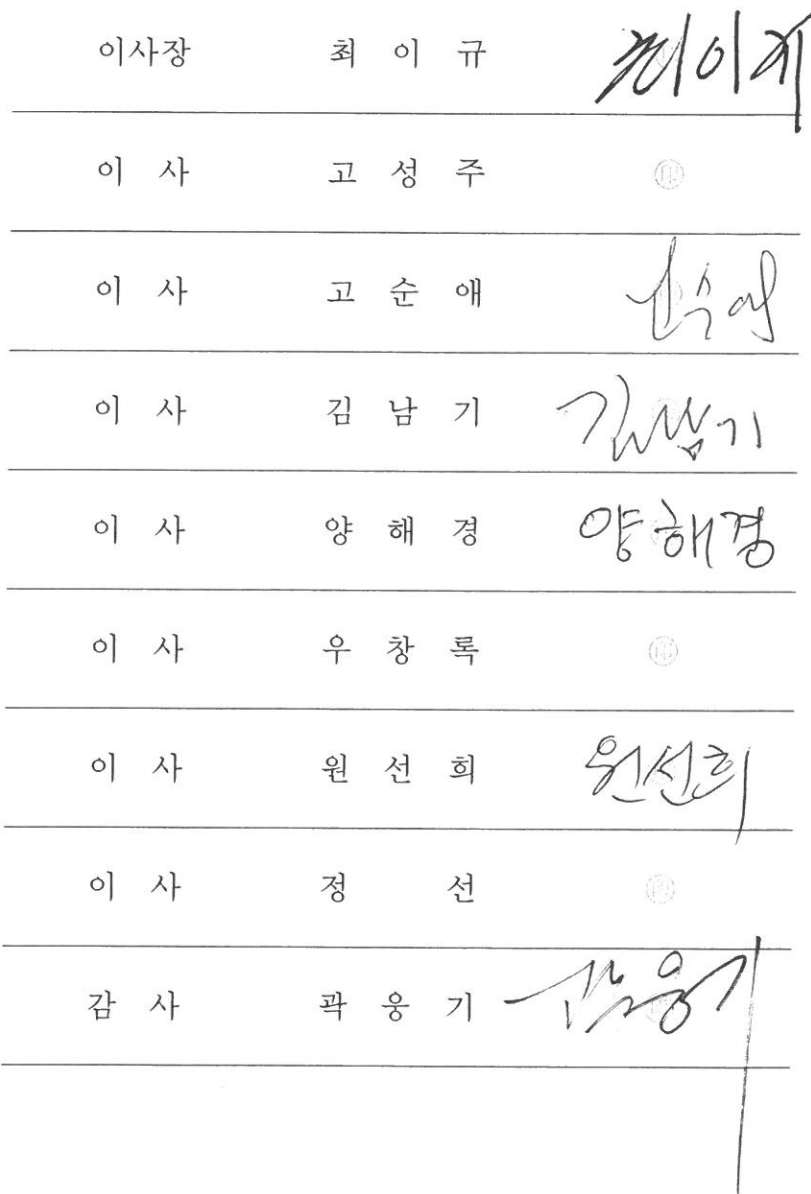 이사장 최 이 규
이 사 고 성 주 ㊞
이 사 고 순 애
이 사 김 남 기 김남기
이 사 양 해 경 양해경
이 사 우 창 록 ㊞
이 사 원 선 희 원선희
이 사 정 선 ㊞
감 사 곽 웅 기